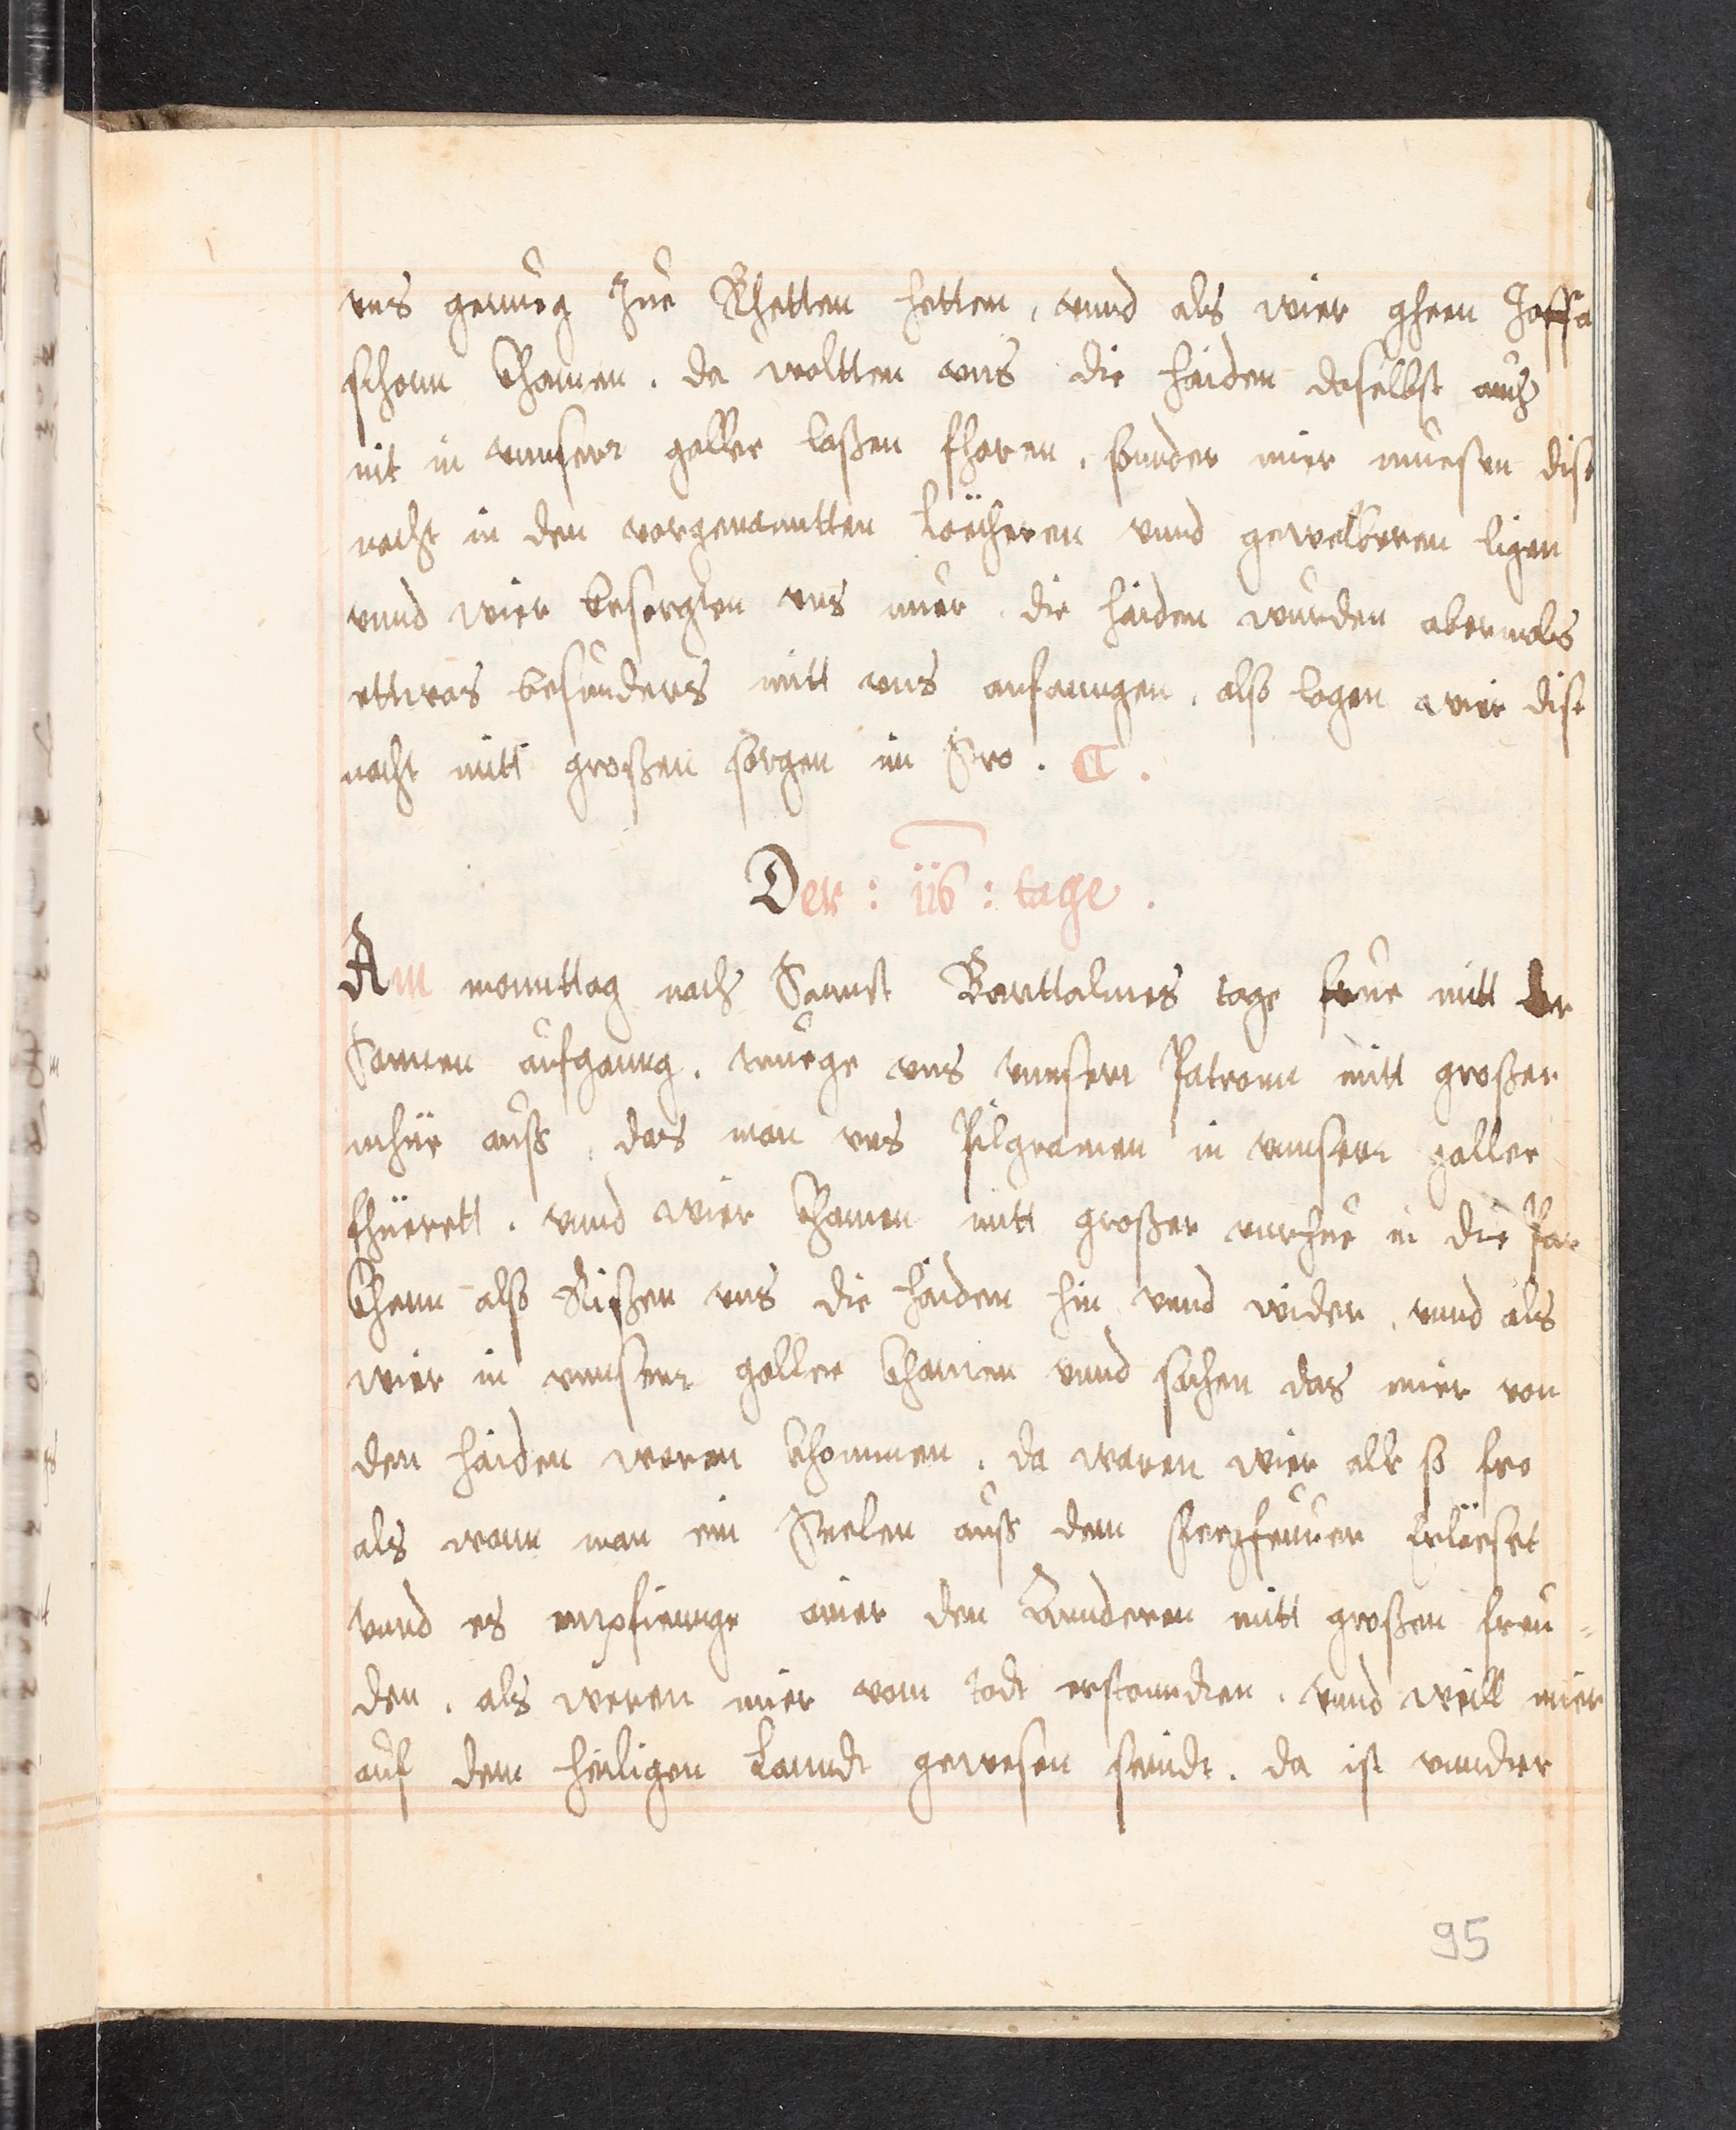 vns genueg Zue Rhetten hetten, vnnd als wier ghen Jaffa
schonn khamen. da woltten vns die haiden daselbst auch
nit in vnnserr gallee laßen fharen, sunder mier muesen dise
nacht in den vorgenanntten Löecheren vnnd gewelberen ligen
vnnd wier besorgten vns nuer. die haiden wurden abermals
ettwas besunders mitt vns anfanngen, also lagen wier dise
nacht mitt großen sorgen im Stro.
Der : 116 : tage .
Am monnttag nach Sannst Barttalmes tage frue mitt der
Sonnen aufganng. truege vns vnnserr Patronn mitt großer
mhüe auss, das man vns Pilgramen in vnnserr gallee
fhüerett. vnnd wier khamen mitt großer vnrhue in die Par
khenn also Rißen vns die haiden hin vnnd wider, vnnd als
wier in vnnserr gallee khamen vnnd sachen das mier von
den haiden waren khommen. da waren wier alle so fro
als wann man ein Seelen auss dem fegfeurer Erlöeset
vnnd es empfiennge ainer den Annderen mitt großen freu=
den. als weren mier vom todt erstanndten. vnnd weill mier
auf dem heiligen Lanndt gewesen seindt. da ist vnnder
95